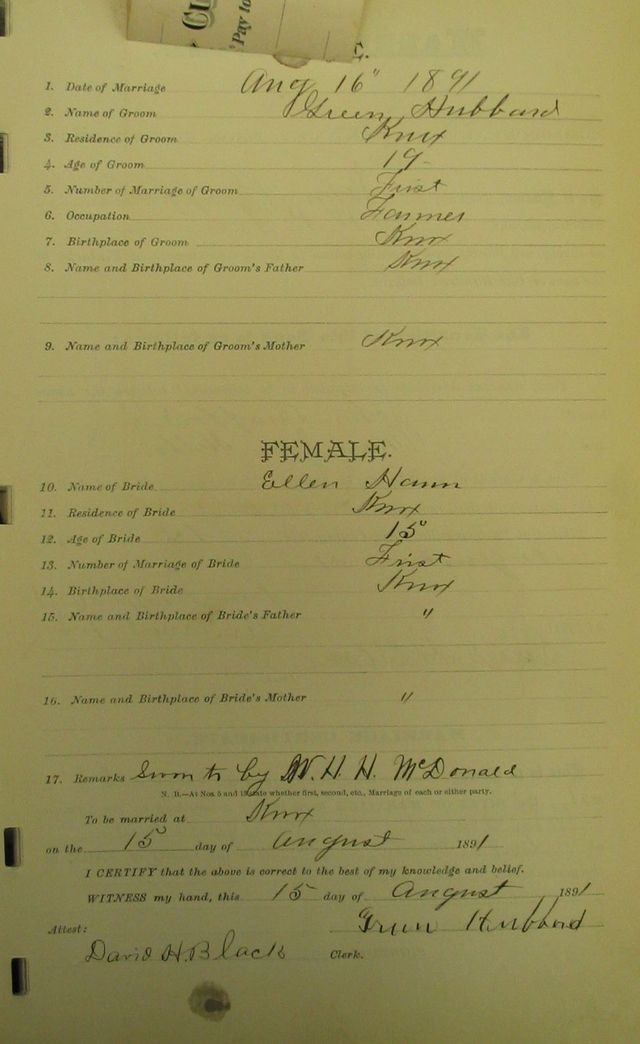 "Pay to
1. Date of Marriage Aug 16" 1891
2. Name of Groom Green Hubbard
3. Residence of Groom Knox
4. Age of Groom 19
5. Number of Marriage of Groom First
6. Occupation Farmer
7. Birthplace of Groom Knox
8. Name and Birthplace of Groom's Father Knox
9. Name and Birthplace of Groom's Mother Knox
FEMALE.
10. Name of Bride Ellen Hamm
11. Residence of Bride Knox
12. Age of Bride 15
13. Number of Marriage of Bride First
14. Birthplace of Bride Knox
15. Name and Birthplace of Bride's Father "
16. Name and Birthplace of Bride's Mother "
17. Remarks Sworn to by W. H. H. McDonald
N. B.—At Nos. 5 and 13 state whether first, second, etc., Marriage of each or either party.
To be married at Knox
on the 15 day of August 1891
I CERTIFY that the above is correct to the best of my knowledge and belief.
WITNESS my hand, this 15 day of August 1891
Green Hubbard
Attest:
David H. Black Clerk.